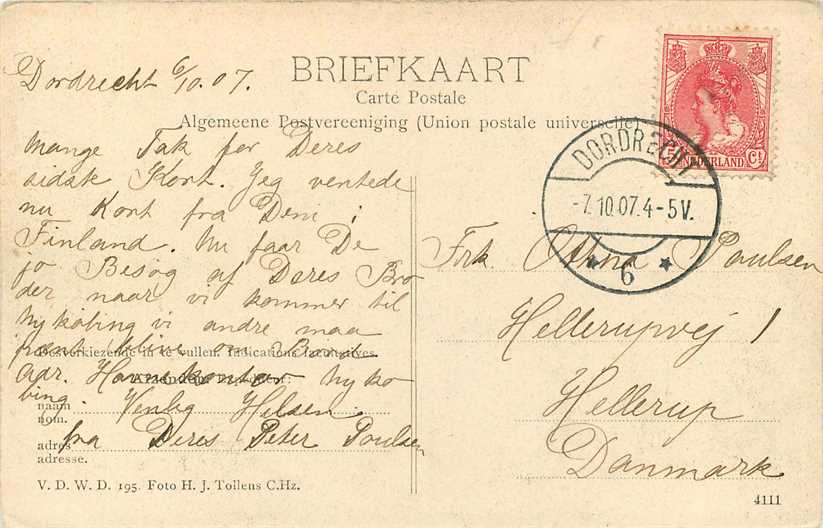 Dordrecht 6/10.07.
BRIEFKAART
Carte Postale
Algemeene Postvereeniging (Union postale universelle)
Mange Tak for Deres
sidste Kort. Jeg ventede
nu Kort fra Dem i
Finland. Nu faar De
jo Besøg af Deres Bro
der naar vi kommer til
Nykøbing vi andre maa
blive om Bord
adr. Havnekontor Nykø
bing. Venlig Hilsen
fra Deres Peter Poulsen
naam
nom.
adres
adresse.
V. D. W. D. 195. Foto H. J. Toilens C.Hz.
NEDERLAND
5 Ct
DORDRECHT
-7.10.07.4-5V.
6
Frk. Poulsen
Hellerupvej 1
Hellerup
Danmark
4111